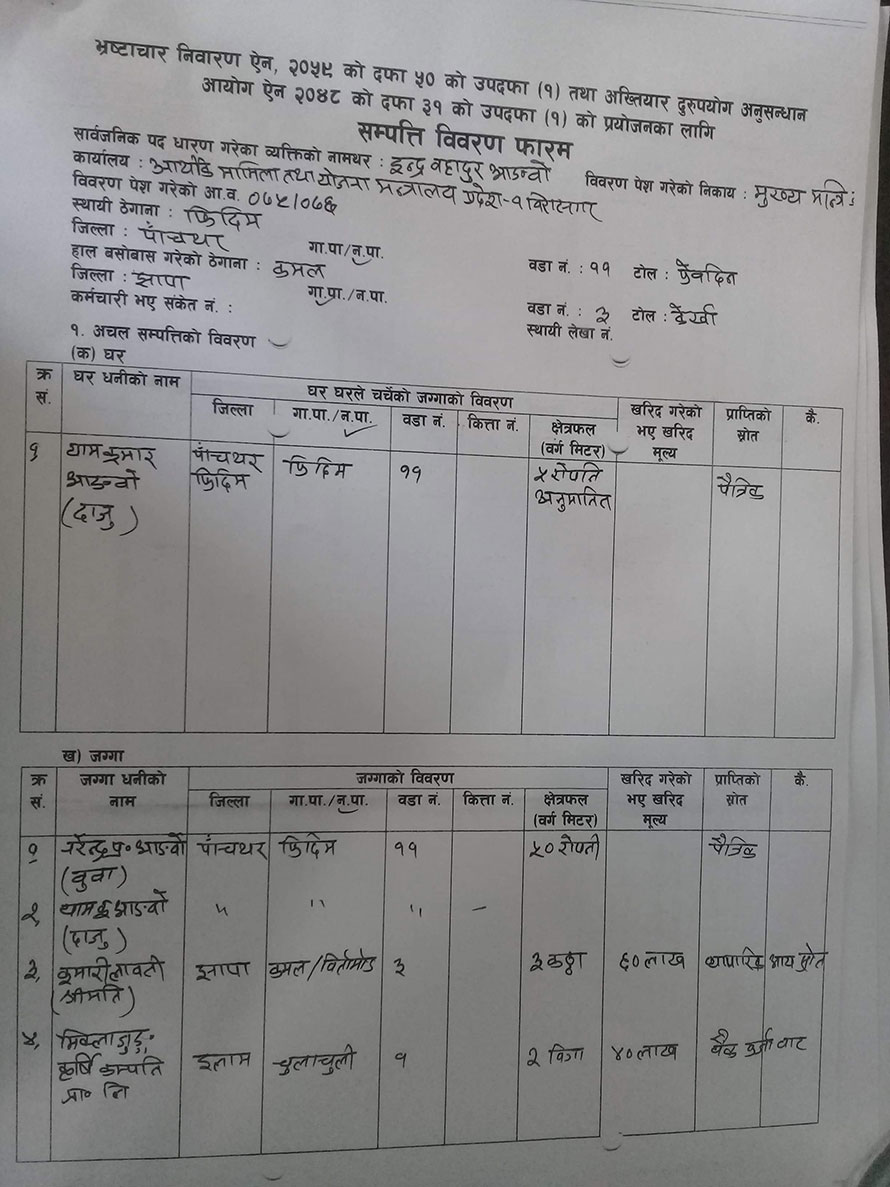 भ्रष्टाचार निवारण ऐन, २०५९ को दफा ५० को उपदफा (१) तथा अख्तियार दुरुपयोग अनुसन्धान
आयोग ऐन २०४८ को दफा ३१ को उपदफा (१) को प्रयोजनका लागि
सम्पत्ति विवरण फारम
सार्वजनिक पद धारण गरेका व्यक्तिको नामथर : इन्द्र बहादुर आङ्बो
विवरण पेश गरेको निकाय : मुख्य मन्त्रि
कार्यालय : आर्थिक मामिला तथा योजना मन्त्रालय प्रदेश-१ विराटनगर
विवरण पेश गरेको आ.व. ०७५/०७६
स्थायी ठेगाना : फिदिम
जिल्ला : पाँचथर गा.पा/न.पा. वडा नं. : ११ टोल :
हाल बसोबास गरेको ठेगाना : कमल
जिल्ला : झापा गा.प्रा./न.पा. वडा नं. : ३ टोल :
कर्मचारी भए संकेत नं. : स्थायी लेखा नं.
१. अचल सम्पत्तिको विवरण
(क) घर
क्र सं. घर धनीको नाम घर घरले चर्चेको जग्गाको विवरण खरिद गरेको भए खरिद मूल्य प्राप्तिको स्रोत कै.
जिल्ला गा.पा./न.पा. वडा नं. कित्ता नं. क्षेत्रफल (वर्ग मिटर)
१ थाम कुमार पाँचथर फिदिम ११ ५ रोपनि पैत्रिक
आङ्बो फिदिम अनुमानित
(दाजु)
ख) जग्गा
क्र सं. जग्गा धनीको नाम जग्गाको विवरण खरिद गरेको भए खरिद मूल्य प्राप्तिको स्रोत कै.
जिल्ला गा.पा./न.पा. वडा नं. कित्ता नं. क्षेत्रफल (वर्ग मिटर)
१ नरेन्द्र प्र० आङबो पाँचथर फिदिम ११ ५० रोपनी पैत्रिक
(बुवा)
२, थाम कु आङबो " " " -
(दाजु)
३, कुमारी लावती झापा कमल/विर्तामोड ३ ३ कठ्ठा ६० लाख व्यापारिक आय स्रोत
(श्रीमति)
४, इलाम चुलाचुली १ २ विगा ४० लाख बैंक कर्जा बाट
कृषि कम्पनि
प्रा० लि